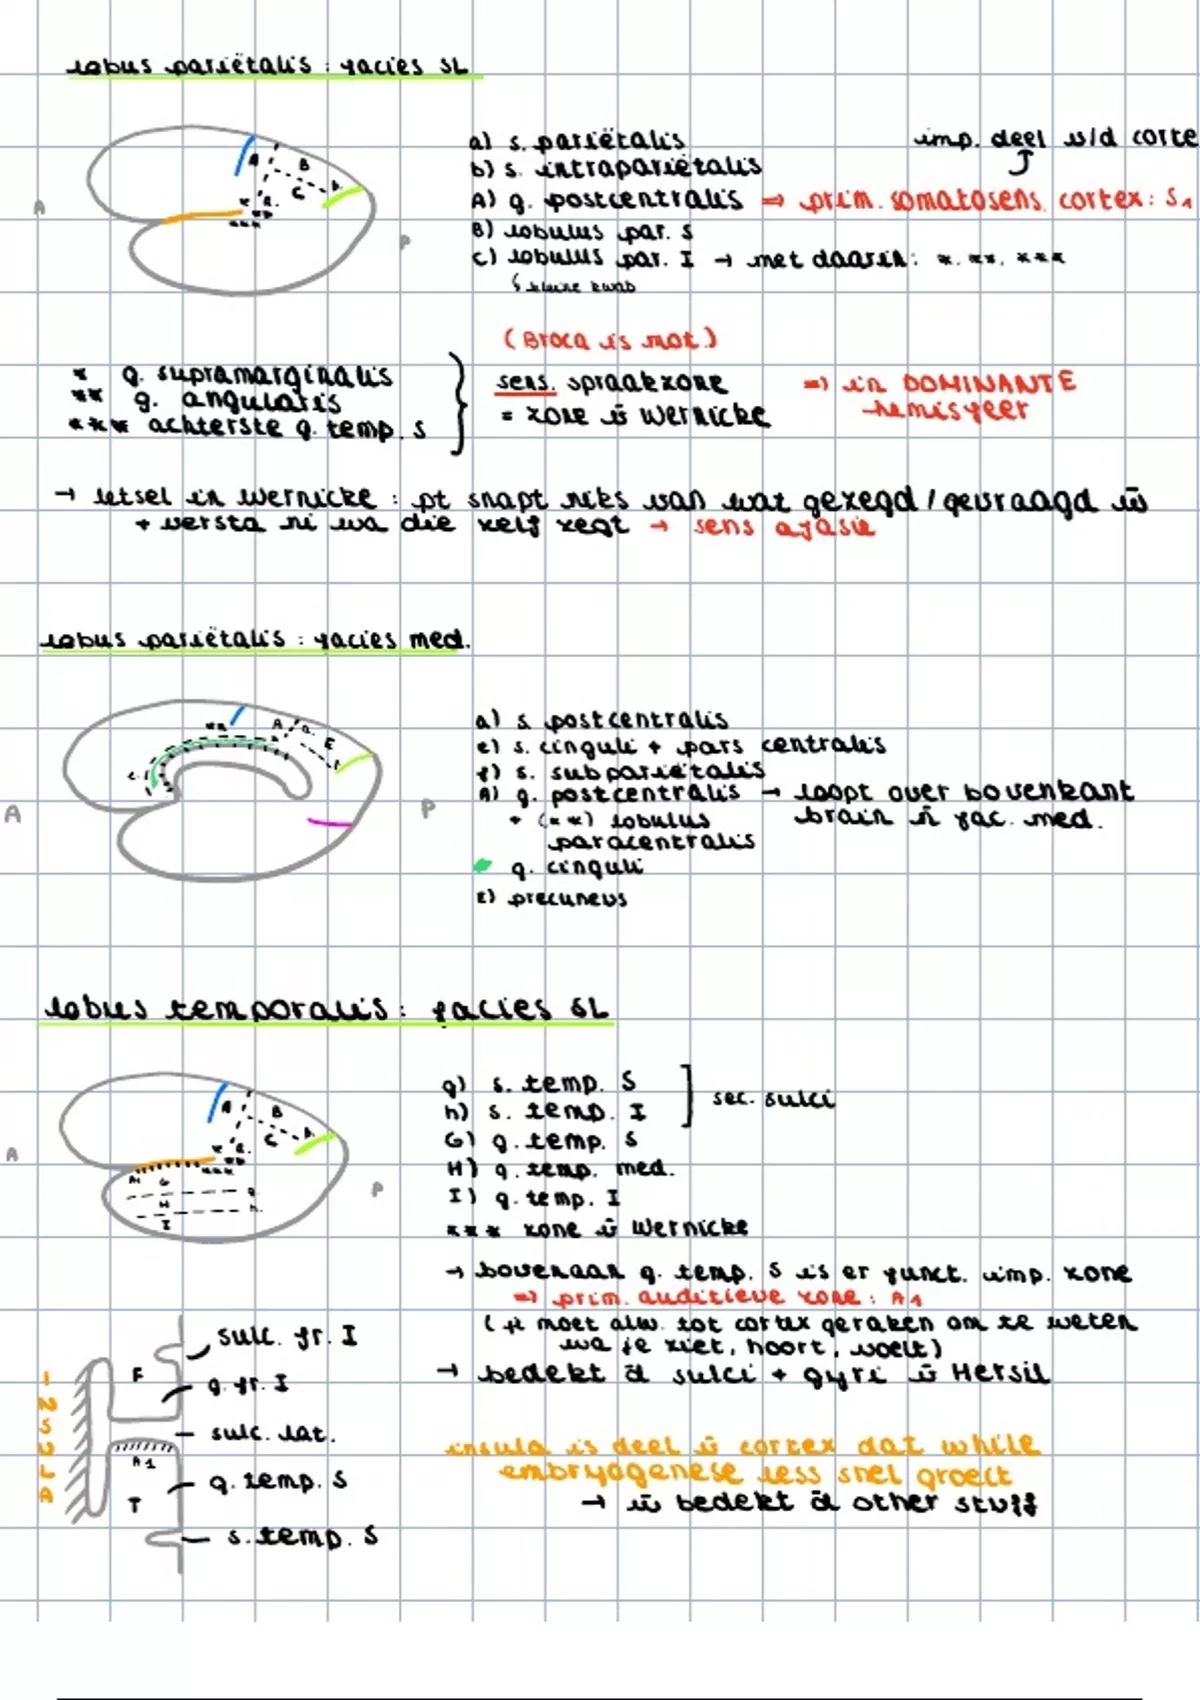 lobus pariëtalis : facies SL
a) s. pariëtalis
imp. deel v/d corte
b) s. intrapariëtalis
A) g. postcentralis ⇒ prim. somatosens. cortex : S1
B) lobulus par. S
C) lobulus par. I → met daarin : *, **, ***
↳ kleine kwab
A B C a. b. * ** ***
A P
(Broca is mot.)
* g. supramarginalis
** g. angularis
*** achterste g. temp. S
sens. spraakzone
= zone v Wernicke
⇒ in DOMINANTE
hemisfeer
→ letsel in Wernicke : pt snapt niks van wat gezegd / gevraagd w
+ versta ni wa die zelf zegt → sens afasie
lobus pariëtalis : facies med.
a) s. postcentralis
e) s. cinguli + pars centralis
f) s. subpariëtalis
A) g. postcentralis → loopt over bovenkant
+ (**) lobulus
brain n fac. med.
paracentralis
g. cinguli
E) precuneus
** A a. E
A P
lobus temporalis : facies SL
g) s. temp. S
h) s. temp. I
sec. sulci
G) g. temp. S
H) g. temp. med.
I) g. temp. I
*** zone v Wernicke
A B C a. b. * ** ***
A1 G H I g. h.
A P
→ bovenaan g. temp. S is er funct. imp. zone
⇒ prim. auditieve zone : A1
( moet alw. tot cortex geraken om te weten
wa je ziet, hoort, voelt)
→ bedekt d sulci + gyri v Hersil
INSULA
F
sulc. fr. I
g. fr. I
sulc. lat.
A1
T
g. temp. S
s. temp. S
insula is deel v cortex dat while
embryogenese less snel groeit
→ w bedekt d other stuff